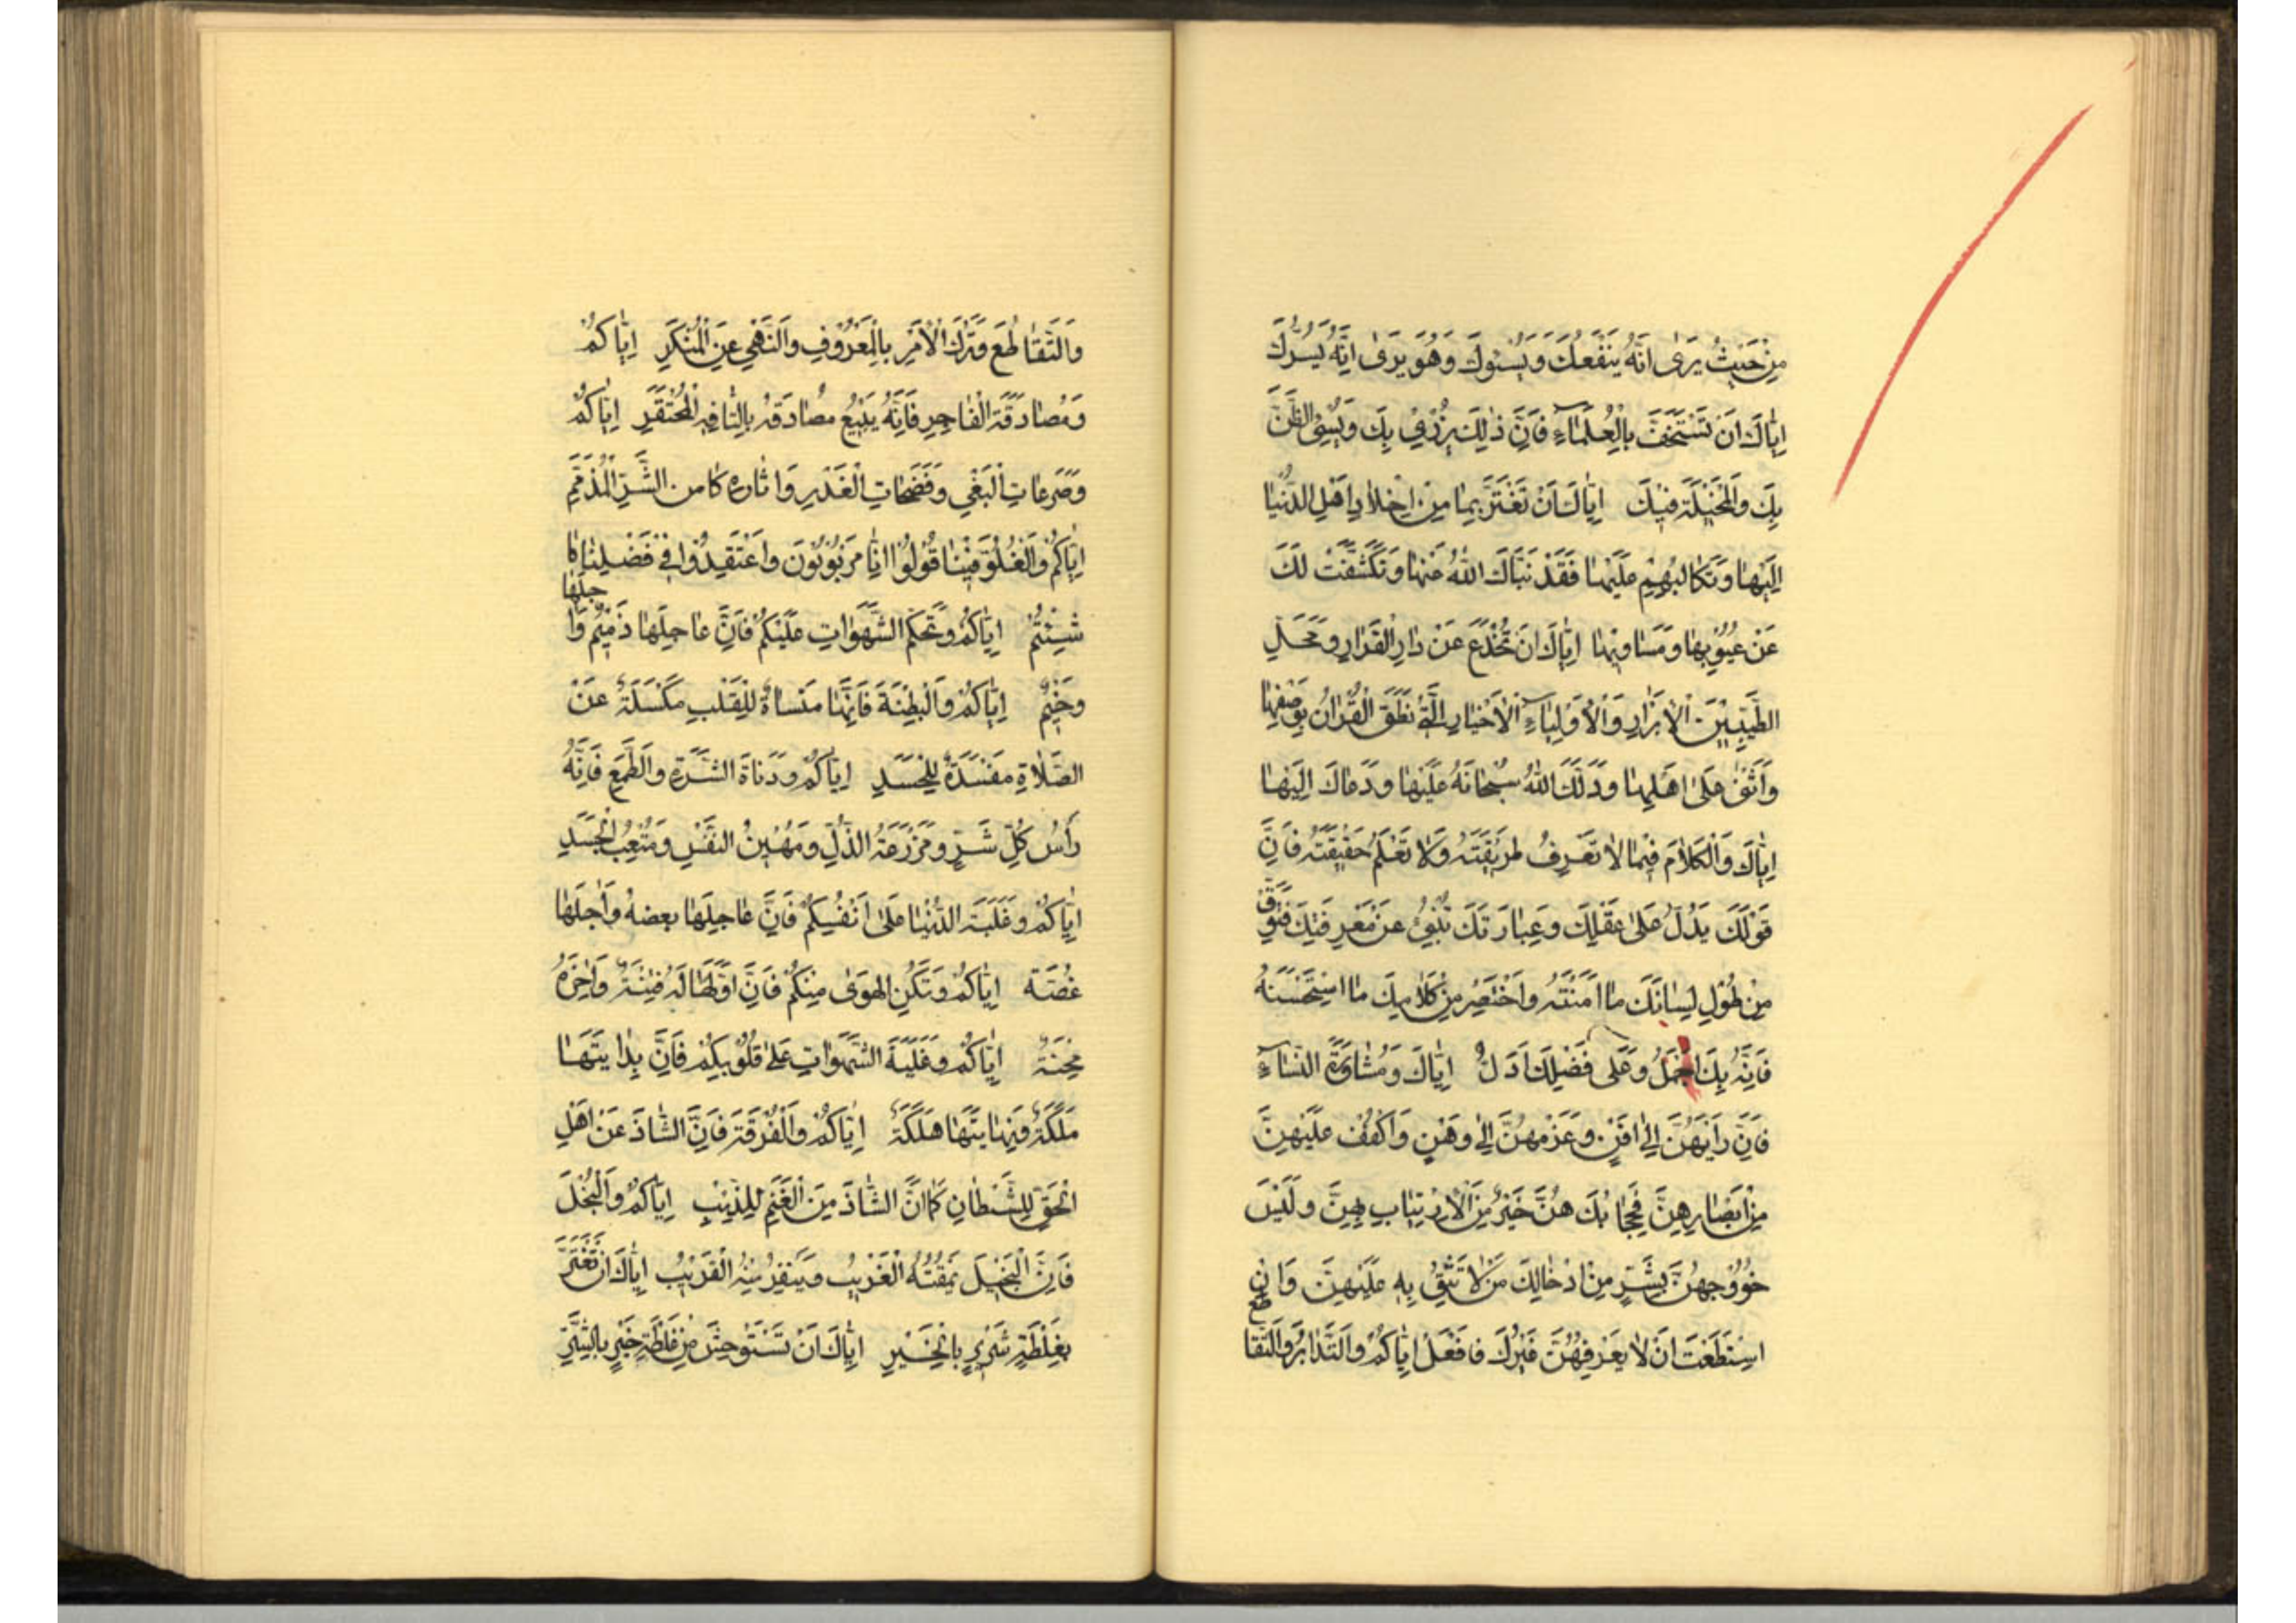 مِنْ حَيْثُ يَرىٰ اَنَّهُ يَنْفَعُكَ وَيَسُوكَ وَهُوَ يَرىٰ اِنَّهُ يَسُرُّكَ
اِيّٰاكَ اَنْ تَسْتَخِفَّ بِالْعُلَمٰاءِ فَاِنَّ ذٰلِكَ يُزْرِيْ بِكَ وَيُسِئُ الظَّنَّ
بِكَ وَالْمُخَيْلَةَ فِيْكَ اِيّٰاكَ اَنْ تَغْتَرَّ بِمٰا مِنْ اِخْلاٰدِ اَهْلِ الدُّنْيٰا
اِلَيْهٰا وَتَكٰالُبِهِمْ عَلَيْهٰا فَقَدْ نَبَّاَكَ اللّٰهُ عَنْهٰا وَتَكَشَّفَتْ لَكَ
عَنْ عُيُوْبِهٰا وَمَسٰاوِيْهٰا اِيّٰاكَ اَنْ تُخْدَعَ عَنْ دٰارِ الْقَرٰارِ وَمَحَلِّ
الطَّيِّبِيْنَ الْاَبْرٰارِ وَالْاَوْلِيٰاءِ الْاَخْيٰارِ الَّتِيْ نَطَقَ الْقُرْاٰنُ بِوَصْفِهٰا
وَاَثْنىٰ عَلىٰ اَهْلِهٰا وَدَلَّكَ اللّٰهُ سُبْحٰانَهُ عَلَيْهٰا وَدَعٰاكَ اِلَيْهٰا
اِيّٰاكَ وَالْكَلاٰمَ فِيْمٰا لاٰ تَعْرِفُ طَرِيْقَتَهُ وَلاٰ تَعْلَمُ حَقِيْقَتَهُ فَاِنَّ
قَوْلَكَ يَدُلُّ عَلىٰ عَقْلِكَ وَعِبٰارَتَكَ تُنْبِئُ عَنْ مَعْرِفَتِكَ فَتَوَقَّ
مِنْ طُوْلِ لِسٰانِكَ مٰا اَمِنْتَهُ وَاخْتَصِرْ مِنْ كَلاٰمِكَ مٰا اسْتَحْسَنْتَهُ
فَاِنَّهُ بِكَ اَجْمَلُ وَعَلىٰ فَضْلِكَ اَدَلُّ اِيّٰاكَ وَمُشٰاوَرَةَ النِّسٰاءِ
فَاِنَّ رَاْيَهُنَّ اِلىٰ اَفْنٍ وَعَزْمَهُنَّ اِلىٰ وَهْنٍ وَاكْفُفْ عَلَيْهِنَّ
مِنْ اَبْصٰارِهِنَّ فَحِجٰابُكَ هُنَّ خَيْرٌ مِنَ الْاِرْتِيٰابِ بِهِنَّ وَلَيْسَ
خُرُوْجُهُنَّ بِشَرٍّ مِنْ اِدْخٰالِكَ مَنْ لاٰ تَثِقُ بِهِ عَلَيْهِنَّ وَاِنِ
اسْتَطَعْتَ اَنْ لاٰ يَعْرِفْهُنَّ غَيْرُكَ فَافْعَلْ اِيّٰاكُمْ وَالتَّدٰابُرَ وَالتَّقٰاطُعَ
وَالتَّقٰاطُعَ وَتَرْكَ الْاَمْرِ بِالْمَعْرُوْفِ وَالنَّهْيِ عَنِ الْمُنْكَرِ اِيّٰاكُمْ
وَمُصٰادَقَةَ الْفٰاجِرِ فَاِنَّهُ يَبِيْعُ مُصٰادَقَهُ بِالتّٰافِهِ الْمُحْتَقَرِ اِيّٰاكُمْ
وَصَرَعٰاتِ الْبَغْيِ وَفَضَحٰاتِ الْغَدْرِ وَاِثٰارَةَ كٰامِنِ الشَّرِّ الْمُذَمَّمِ
اِيّٰاكُمْ وَالْغُلُوَّ فِيْنٰا قُوْلُوْا اِنّٰا مَرْبُوْبُوْنَ وَاعْتَقِدُوْا فِيْ فَضْلِنٰا مٰا
شِئْتُمْ اِيّٰاكُمْ وَتَحَكُّمَ الشَّهَوٰاتِ عَلَيْكُمْ فَاِنَّ عٰاجِلَهٰا ذَمِيْمٌ وَاٰجِلَهٰا
وَخِيْمٌ اِيّٰاكُمْ وَالْبِطْنَةَ فَاِنَّهٰا مَنْسٰاةٌ لِلْقَلْبِ مَكْسَلَةٌ عَنْ
الصَّلاٰةِ مَفْسَدَةٌ لِلْجَسَدِ اِيّٰاكُمْ وَدَنٰاةَ الشَّرَهِ وَالطَّمَعِ فَاِنَّهُ
رَاْسُ كُلِّ شَرٍّ وَمَزْرَعَةُ الذُّلِّ وَمُهِيْنُ النَّفْسِ وَمُتْعِبُ الْجَسَدِ
اِيّٰاكُمْ وَغَلَبَةَ الدُّنْيٰا عَلىٰ اَنْفُسِكُمْ فَاِنَّ عٰاجِلَهٰا بعضه وَاٰجِلَهٰا
غُصَّة اِيّٰاكُمْ وَتَمَكُّنَ الهَوىٰ مِنْكُمْ فَاِنَّ اَوَّلَهٰا لَهُ فِتْنَةٌ وَاٰخِرَهُ
مِحْنَةٌ اِيّٰاكُمْ وَغَلَبَةَ الشَّهَوٰاتِ عَلىٰ قُلُوْبِكُمْ فَاِنَّ بِدٰايَتَهٰا
مَلَكَةٌ وَنِهٰايَتَهٰا هَلَكَةٌ اِيّٰاكُمْ وَالْفُرْقَةَ فَاِنَّ الشّٰاذَّ عَنْ اَهْلِ
الْحَقِّ لِلشَّيْطٰانِ كَمٰا اَنَّ الشّٰاذَّ مِنَ الْغَنَمِ لِلذِّئْبِ اِيّٰاكُمْ وَالْبُخْلَ
فَاِنَّ الْبَخِيْلَ يَمْقُتُهُ الْغَرِيْبُ وَيَنْفِرُ مِنْهُ الْقَرِيْبُ اِيّٰاكَ اَنْ تَغْتَرَّ
بِغَلْطَةِ شَرِيْرٍ بِالْخَيْرِ اِيّٰاكَ اَنْ تَسْتَوْحِشَ مِنْ غَلْطَةِ خَيْرٍ بِالشَّرِّ